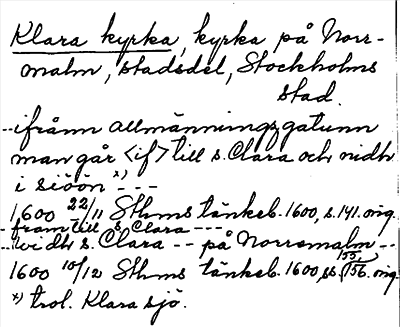 Klara kyrka, kyrka på Norr-
malm, stadsdel, Stockholms
stad.
--ifrånn allmänningzgatunn
man går <if> till s. Clara och nidh
i siöön x) ---
1600 22/11 Sthms tänkeb. 1600, s. 141. orig.
- fram till s Clara ---
--widh s. Clara -- på Norresmalm --
1600 10/12 Sthms tänkeb. 1600, ss. 155, 156. orig.
x) trol. Klara sjö.